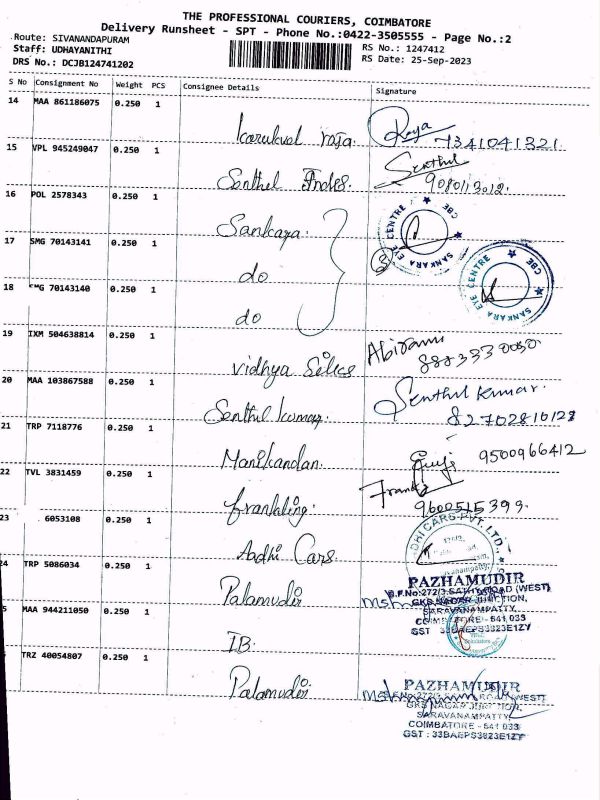 THE PROFESSIONAL COURIERS, COIMBATORE
Delivery Runsheet - SPT - Phone No.:0422-3505555 - Page No.:2
Route: SIVANANDAPURAM
RS No.: 1247412
Staff: UDHAYANITHI
RS Date: 25-Sep-2023
DRS No.: DCJB124741202
S No Consignment No Weight PCS Consignee Details Signature
14 MAA 861186075 0.250 1
raja Raja 7341041321
15 VPL 945249047 0.250 1
Senthil Senthil
9080113012.
16 POL 2578343 0.250 1
Sankara
SANKARA EYE CENTRE CBE
17 SMG 70143141 0.250 1
do
SANKARA EYE CENTRE CBE
18 SMG 70143140 0.250 1
do
19 IXM 504638814 0.250 1
Vidhya Selies Abirami
20 MAA 103867588 0.250 1
Senthil kumar Senthil kumar.
8270281012
21 TRP 7118776 0.250 1
Manikandan. 9500966412
22 TVL 3831459 0.250 1
Frankling. Frankly
9600515399.
23 6053108 0.250 1
Aadhi Cars.
DHI CARS PVT. LTD.,
24 TRP 5086034 0.250 1
Palamudir
PAZHAMUDIR
S.F.No:272/3,SATHY ROAD (WEST)
GKS NAGAR JUNCTION,
SARAVANAMPATTY,
COIMBATORE - 641 035
GST 33BAEPS3823E1ZY
5 MAA 944211050 0.250 1
IB.
TRZ 40054807 0.250 1
Palamudir
PAZHAMUDIR
GKS NAGAR JUNCTION,
SARAVANAMPATTY,
COIMBATORE - 641 035
GST : 33BAEPS3823E1ZY